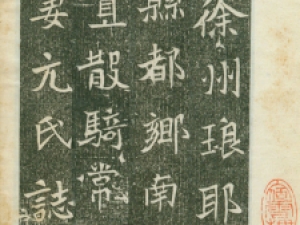 徐州琅耶
縣都鄉南
直散騎常
妻元氏誌